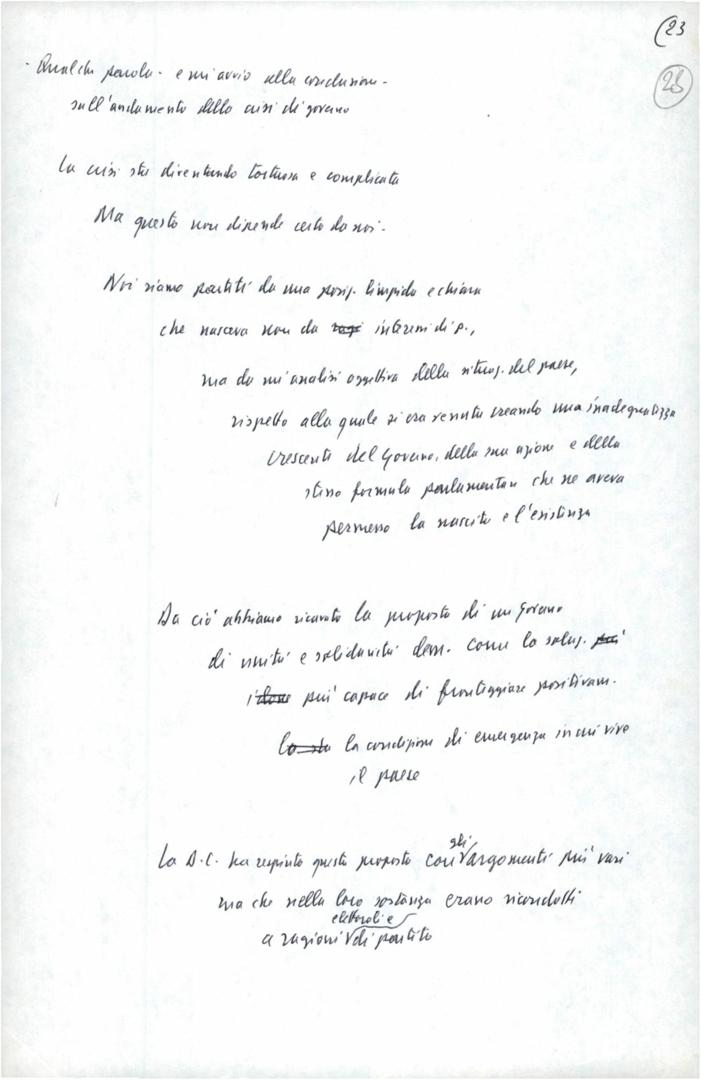 (23
25
- Qualche parola - e mi avvio alla conclusione -
sull'andamento della crisi di governo
La crisi sta diventando tortuosa e complicata
Ma questo non dipende certo da noi.
Noi siamo partiti da una posiz. limpida e chiara
che nasceva non da ragi interessi di p.,
ma da un'analisi oggettiva della situaz. del paese,
rispetto alla quale si era venuta creando una inadeguatezza
crescente del Governo, della sua azione e della
stessa formula parlamentare che ne aveva
permesso la nascita e l'esistenza
Da ciò abbiamo ricavato la proposta di un Governo
di unità e solidarietà dem. come la soluz. più
più capace di fronteggiare positivam.
la condizione di emergenza in cui vive
il paese
La D.C. ha respinto questa proposta con gli argomenti più vari
ma che nella loro sostanza erano ricondotti
a ragioni elettorali e di partito